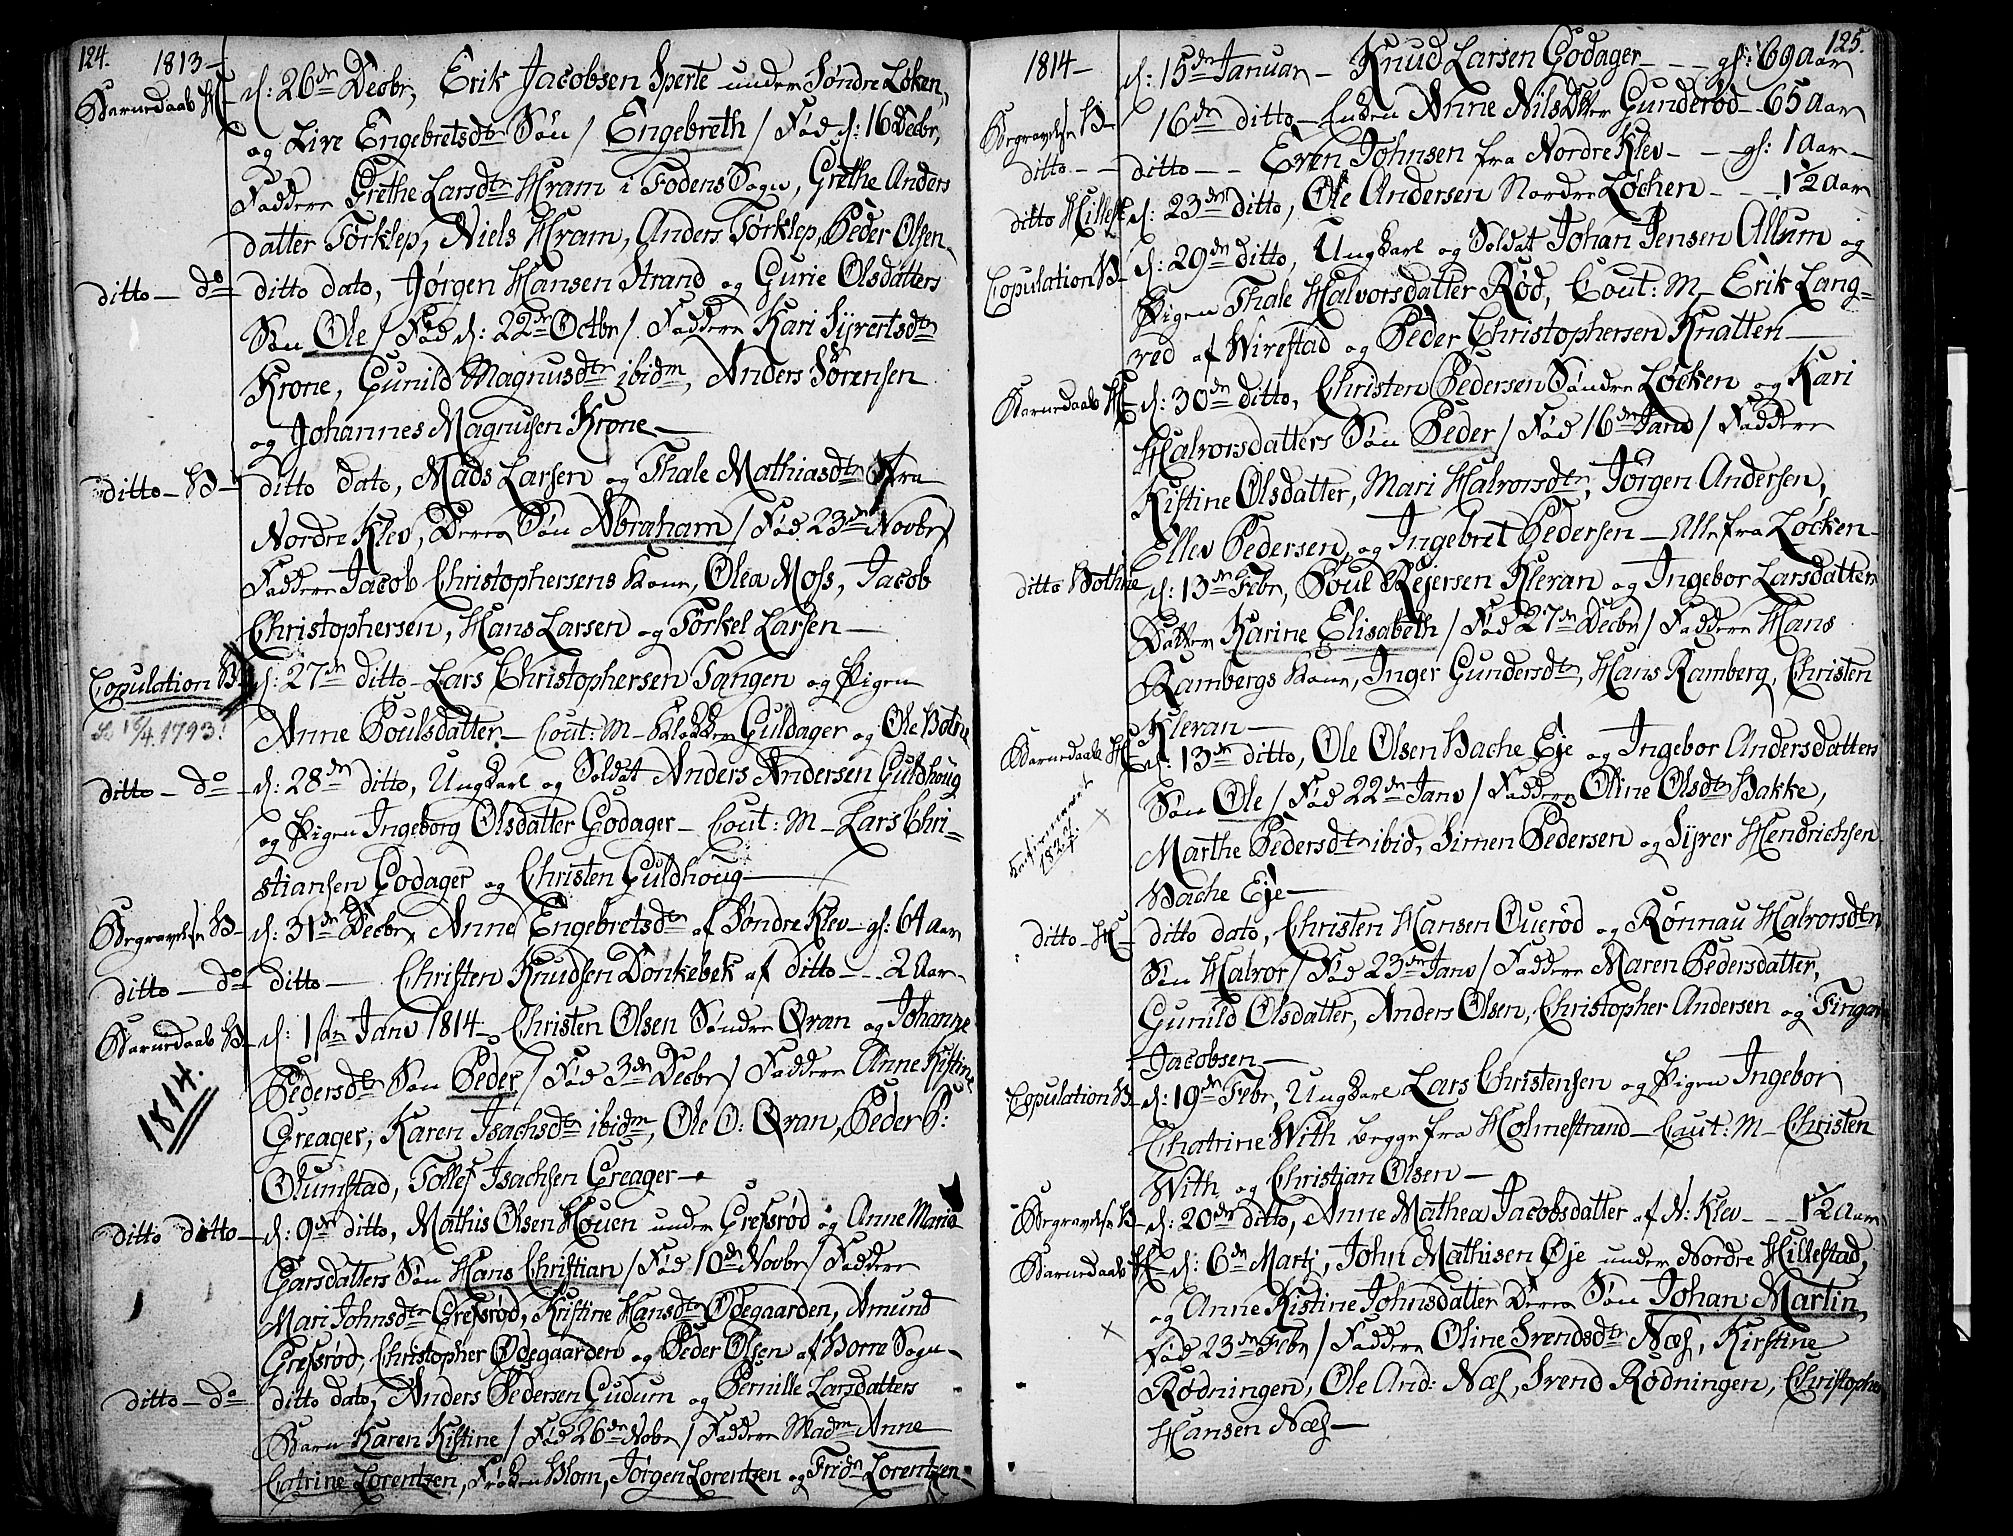 124.
1813 —
Barnedaab H — d: 26de Decbr, Erik Jacobsen Sperte under Søndre Løken,
og Live Engebretsdtr Søn / Engebreth / Fød d: 16 Decbr,
Faddere Grethe Larsdtr Hram i Fodens Sogn, Grethe Anders
datter Tørklep, Niels Hram, Anders Tørklep, Peder Olsen
ditto — do — ditto dato, Jørgen Hansen Strand og Gurie Olsdatters
Søn Ole / Fød d: 22de Octbr / Faddere Kari Syvertsdtr
Krone, Gunild Magnusdtr ibidm, Anders Sørensen
og Johannes Magnusen Krone —
ditto — B — ditto dato, Mads Larsen og Thale Mathiasdtr fra
Nordre Klev, Deres Søn Abraham / Fød 23de Novbr /
Faddere Jacob Christophersens Kone, Olea Moss, Jacob
Christophersen, Hans Larsen og Torkel Larsen —
Copulation B — d: 27de ditto — Lars Christophersen Tangen og Pigen
1793!
Anne Poulsdatter — Cout: M — Klokker Guldager og Ole Botne
ditto — do — d: 28de ditto, Ungkarl og Soldat Anders Andersen Guldhoug
og Pigen Ingeborg Olsdatter Godager — Cout: M — Lars Chri-
stiansen Godager og Christen Guldhoug —
Begravelse B — d: 31de Decbr, Anne Engebretsdtr af Søndre Klev — gl: 64 Aar
ditto — do ditto — Christen Knudsen Donkebek af ditto — 2 Aar —
Barnedaab B — d: 1ste Janv 1814 — Christen Olsen Søndre Qvan og Johanne
1814.
Pedersdtr Søn Peder / Fød 3de Decbr / Faddere Anne Kistine
Greager, Karen Isachsdtr ibidm, Ole O: Qvan, Peder P:
Olumstad, Tollef Isachsen Greager —
ditto ditto — d: 9de ditto, Mathis Olsen Houen under Grefsrød og Anne Marie
Garsdatters Søn Hans Christian / Fød 10de Novbr / Faddere
Mari Johnsdtr Grefsrød, Kristine Hansdtr Ødegaarden, Amund
Grefsrød, Christopher Ødegaarden og Peder Olsen af Borre Sogn —
ditto — do ditto dato, Anders Pedersen Gudum og Pernille Larsdatters
Barn Karen Kistine / Fød 26de Nobr / Faddere Madm Anne
Catrine Lorentzen, Frøken Blom, Jørgen Lorentzen og Fridr Lorentzen
125.
1814 — d: 15de Januar — Knud Larsen Godager — — — gl: 69 Aar
Begravelse B — 16de ditto — Enken Anne Nilsdatter Gunderød — 65 Aar
ditto — — ditto — — Even Johnsen fra Nordre Klev — — gl: 1 Aar —
ditto Hillest d: 23de ditto, Ole Andersen Nordre Løchen — — 1½ Aar
Copulation B — d: 29de ditto, Ungkarl og Soldat Johan Jensen Allum og
Pigen Thale Halvorsdatter Rød, Cout: M — Erik Lang=
ved af Wirestad og Peder Christophersen Knatten —
Barnedaab H — d: 30de ditto, Christen Pedersen Søndre Løcken og Kari
Halvorsdatters Søn Peder / Fød 16de Janv / Faddere
Kistine Olsdatter, Mari Halvorsdtr, Jørgen Andersen,
Ellev Pedersen, og Ingebret Pedersen — Alle fra Løcken —
ditto Bothne d: 13de Febr, Poul Rejersen Kleran og Ingebor Larsdatters
Datter Karine Elisabeth / Fød 27de Decbr / Faddere Hans
Rambergs Kone, Inger Gundersdtr, Hans Ramberg, Christen
Kleran —
Barnedaab H — d: 13de ditto, Ole Olsen Bache Eje og Ingebor Andersdatters
Søn Ole / Fød 22de Janv / Faddere Oline Olsdtr Bakke,
Konfirmeret
182
×
Marthe Pedersdtr ibid, Simen Pedersen og Syver Hendrichsen
Bache Eje —
ditto — H — ditto dato, Christen Hansen Querød og Rønnau Halvorsdtr
Søn Halvor / Fød 23de Janv / Faddere Maren Pedersdatter,
Gunild Olsdatter, Anders Olsen, Christopher Andersen og Fingar
Jacobsen —
Copulation B — d: 19de Febr, Ungkarl Lars Christensen og Pigen Ingebor
Chatrine With begge fra Holmestrand — Cout: M — Christen
With og Christian Olsen —
Begravelse B — d: 20de ditto, Anne Mathea Jacobsdatter af N: Klev — — 1½ Aar
Barnedaab H — d: 6de Martj, John Mathisen Øje under Nordre Hillestad,
og Anne Kistine Johnsdatter Deres Søn Johan Martin,
× Fød 23de Febr / Faddere Oline Svendsdtr Næs, Kirstine
Rødningen, Ole And: Næs, Svend Rødningen, Christopher
Hansen Næs —